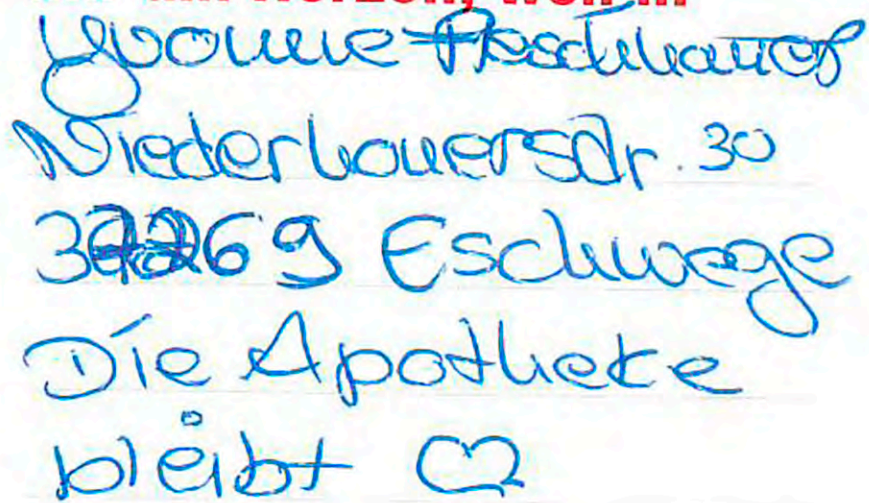 Yvonne
Niederhonerstr. 30
37269 Eschwege
Die Apotheke
bleibt ♡